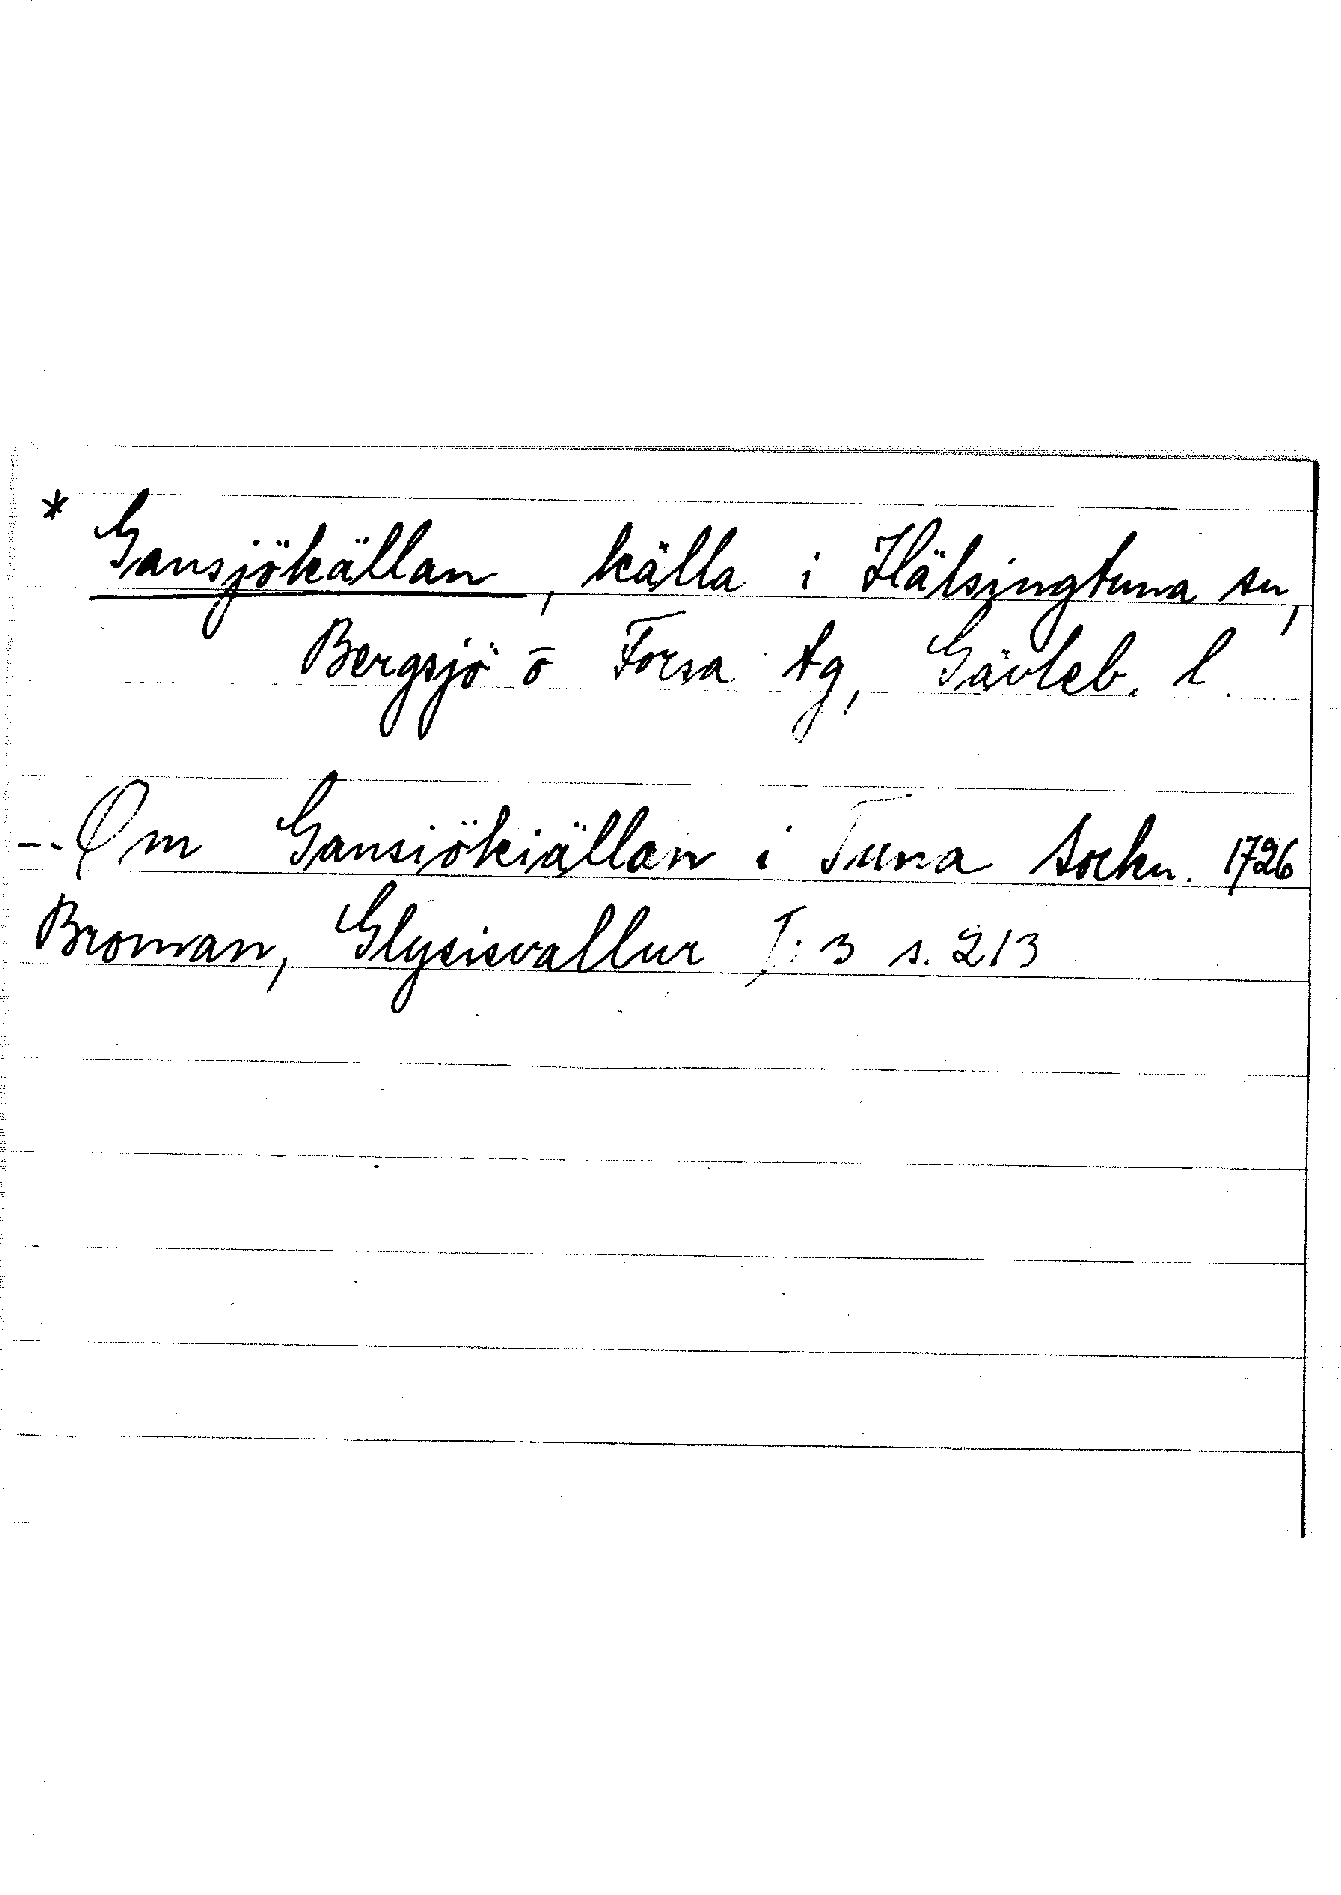 * Gansjökällan, källa i Hälsingtuna sn,
Bergsjö o Forsa tg, Gävleb. l.
--- Om Gansiökiällan i Tuna Sockn. 1726
Broman, Glysisvallur I: 3 s. 213